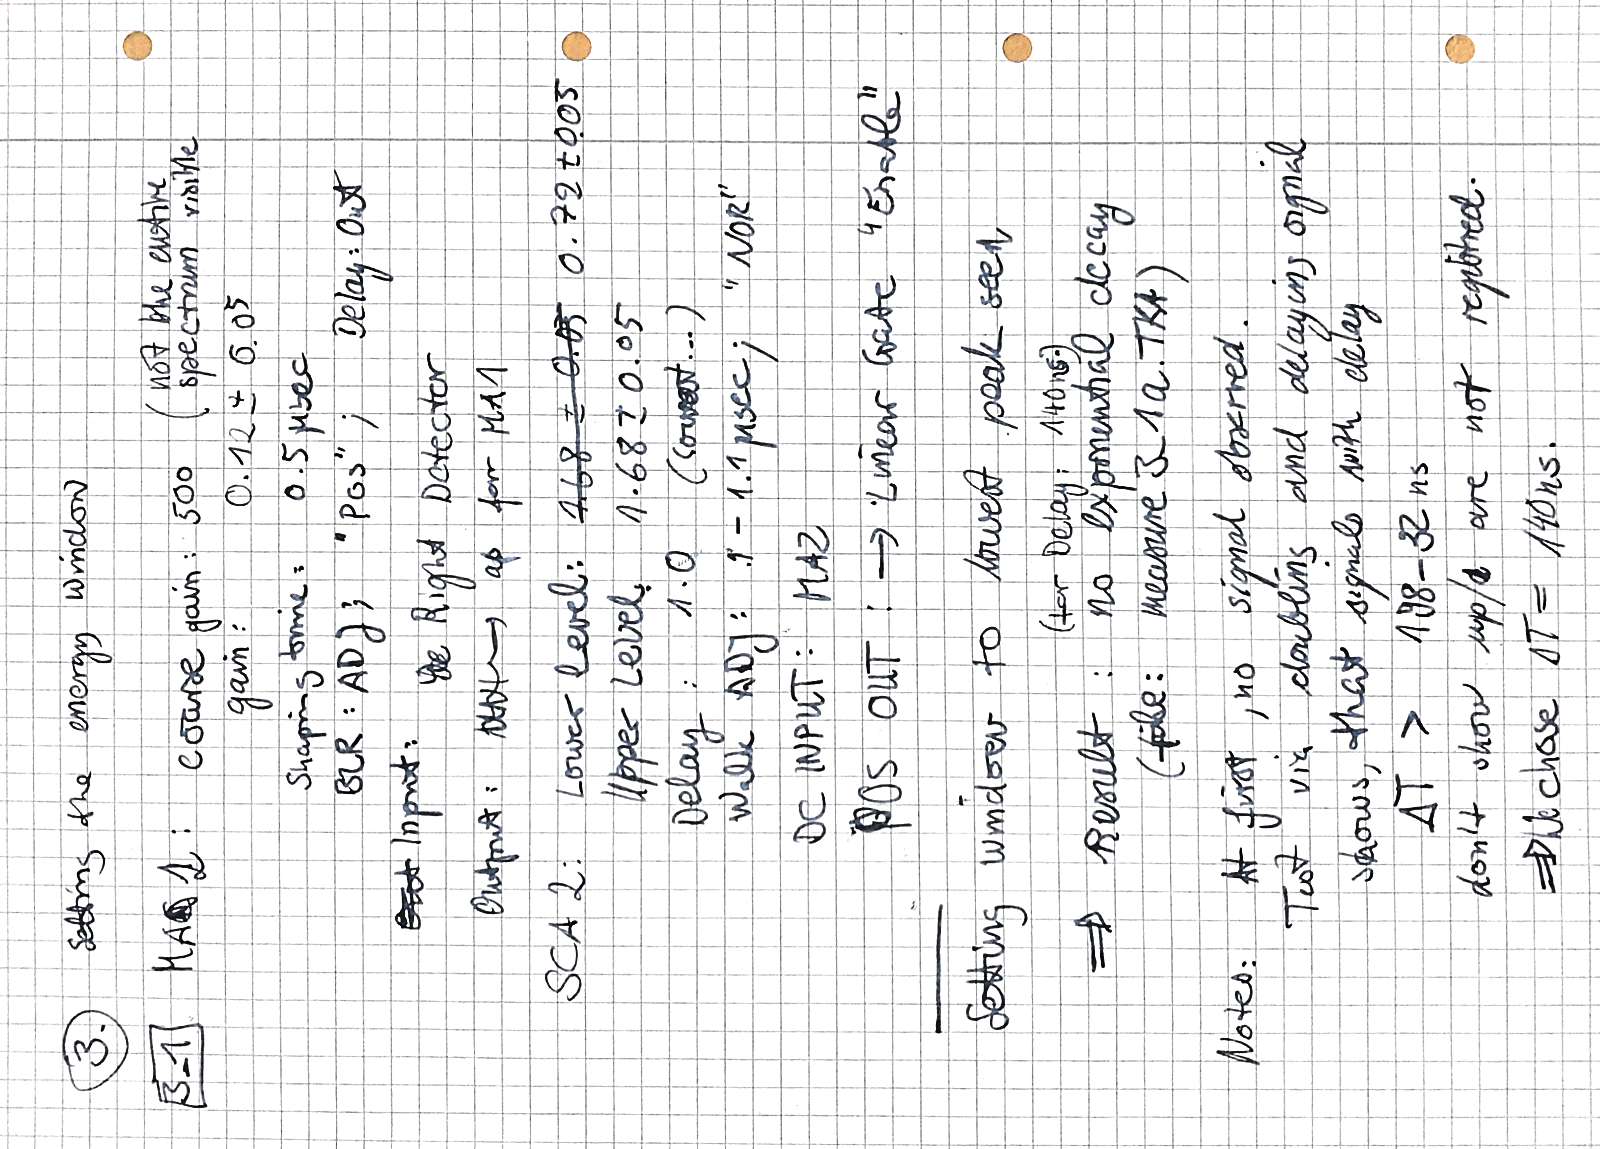 3. Setting the energy window
3-1 MA 2: coarse gain: 500 (not the entire
spectrum visible
gain: 0.12 ± 0.05
Shaping time: 0.5 μsec
BLR: ADJ; "POS"; Delay: Out
Input: Right Detector
Output: → ap for MA1
SCA 2: Lower Level: 1.68 ± 0.05 0.72 ± 0.05
Upper Level: 1.68 ± 0.05
Delay: 1.0 (lowest...)
Walk ADJ: 1.1 μsec; "NOR"
DC INPUT: MA2
POS OUT: → Linear Gate "Enable"
Setting window to lowest peak seen
(for Delay: 140ns)
⇒ Result: no exponential decay
(file: measure 3_1a.TKA)
Notes: At first, no signal observed.
Test via doubling and delaying signal
shows, that signals with delay
ΔT > 198-32 ns
don't show up/ are not registred.
⇒ We chose ΔT = 140ns.